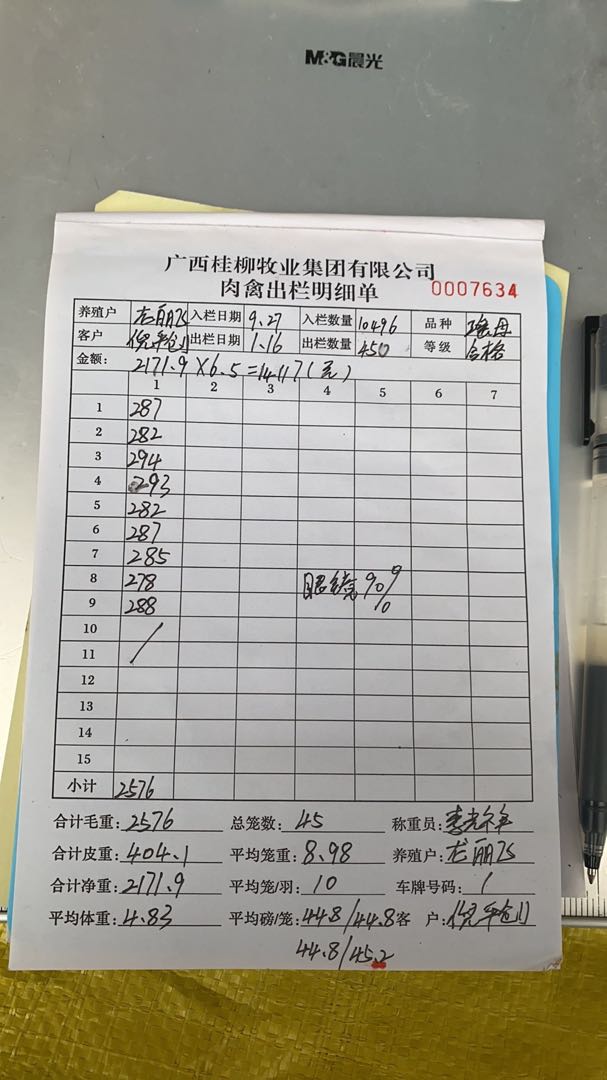 M&G晨光
广西桂柳牧业集团有限公司
肉禽出栏明细单 0007634
养殖户 龙丽飞 入栏日期 9.27 入栏数量 10496 品种 瑶母
客户 倪平创 出栏日期 1.16 出栏数量 450 等级 合格
金额: 2171.9×6.5=14117(元)
1 2 3 4 5 6 7
1 287
2 282
3 294
4 293
5 282
6 287
7 285
8 278 眼镜90%
9 288
10
11
12
13
14
15
小计 2576
合计毛重: 2576 总笼数: 45 称重员:
合计皮重: 404.1 平均笼重: 8.98 养殖户: 龙丽飞
合计净重: 2171.9 平均笼/羽: 10 车牌号码: /
平均体重: 4.83 平均磅/笼: 44.8/44.8 客 户: 倪平创
44.8/45.2